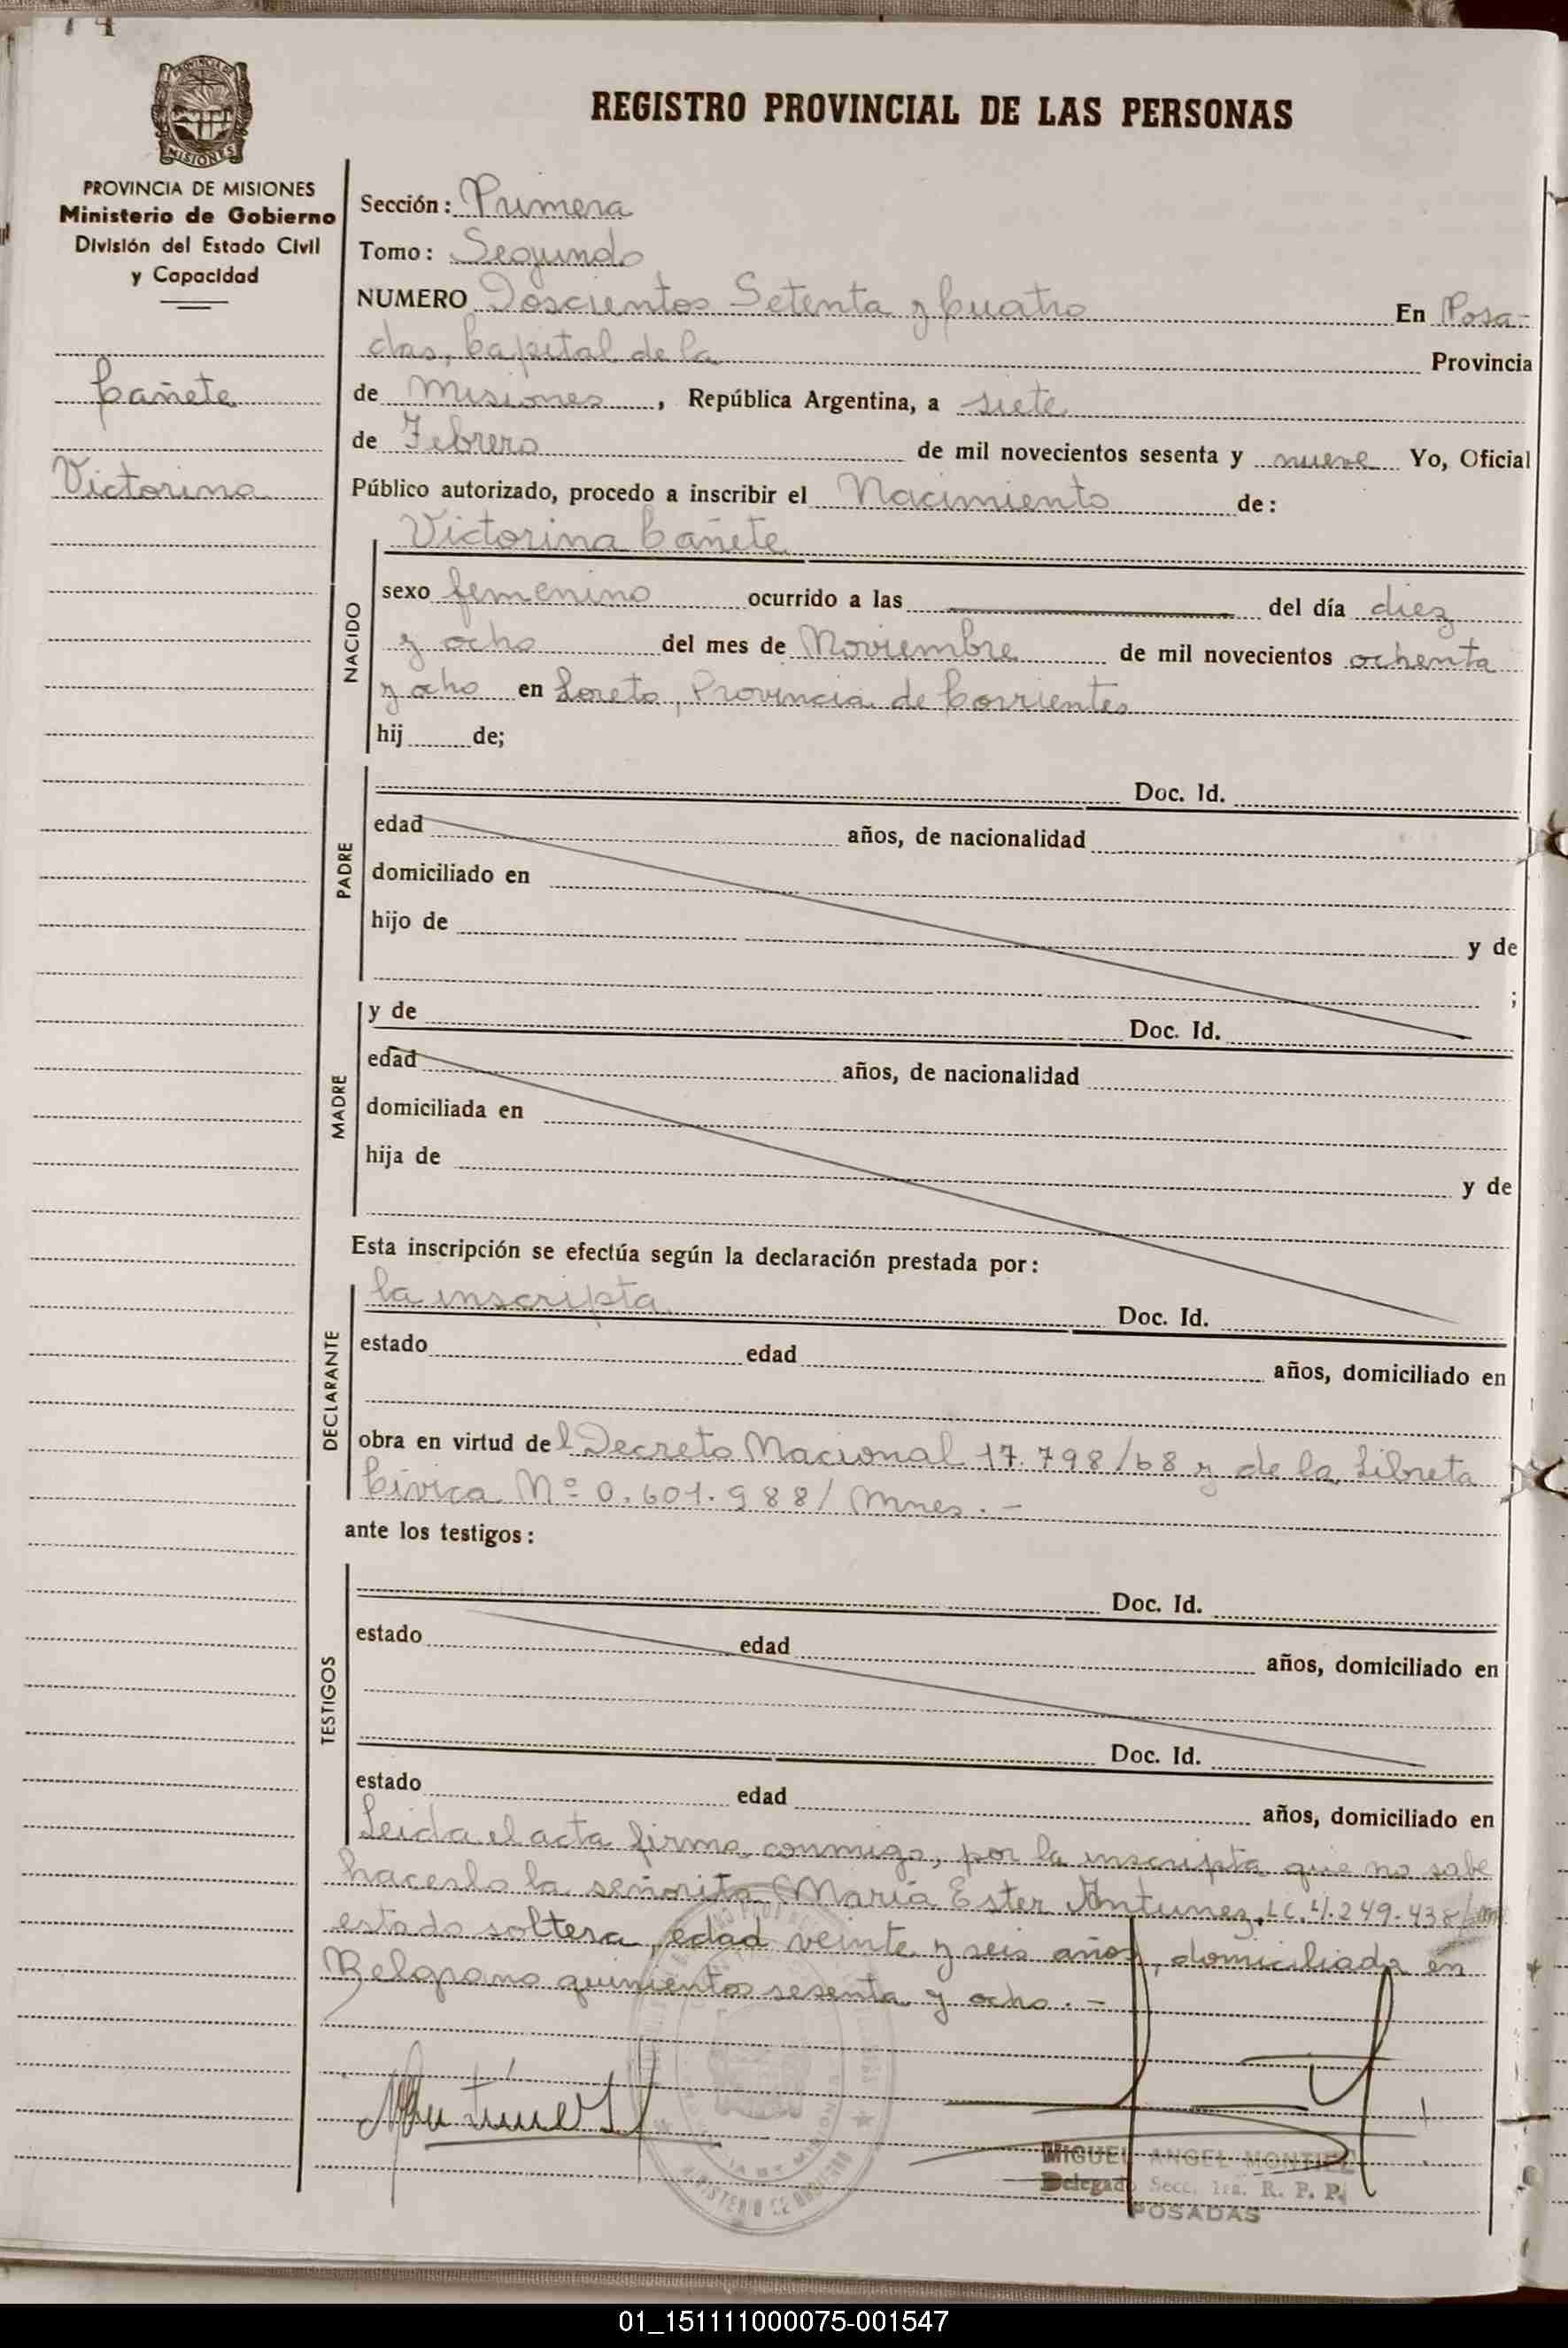 REGISTRO PROVINCIAL DE LAS PERSONAS
MISIONES
PROVINCIA DE MISIONES
Ministerio de Gobierno
División del Estado Civil
y Capacidad
Cañete
Victorina
Sección: Primera
Tomo: Segundo
NUMERO Doscientos Setenta y Cuatro En Posa-
das, Capital de la Provincia
de Misiones, República Argentina, a siete
de Febrero de mil novecientos sesenta y nueve Yo, Oficial
Público autorizado, procedo a inscribir el Nacimiento de:
Victorina Cañete
NACIDO
sexo femenino ocurrido a las del día diez
y ocho del mes de Noviembre de mil novecientos ochenta
y ocho en Loreto, Provincia de Corrientes
hij de;
PADRE
Doc. Id.
edad años, de nacionalidad
domiciliado en
hijo de y de
;
MADRE
y de Doc. Id.
edad años, de nacionalidad
domiciliada en
hija de y de
Esta inscripción se efectúa según la declaración prestada por:
DECLARANTE
la inscripta Doc. Id.
estado edad años, domiciliado en
obra en virtud del Decreto Nacional 17.798/68 y de la Libreta
Cívica Nº 0.601.988/Mnes.-
ante los testigos:
TESTIGOS
Doc. Id.
estado edad años, domiciliado en
Doc. Id.
estado edad años, domiciliado en
Leida el acta firma conmigo, por la inscripta que no sabe
hacerlo la señorita María Ester Antunez, LC. 4.249.438/
estado soltera, edad veinte y seis años, domiciliada en
Belgrano quinientos sesenta y ocho.-
MIGUEL ANGEL MONTIEL
Delegado Secc. 1ra. R. P. P.
POSADAS
01_151111000075-001547